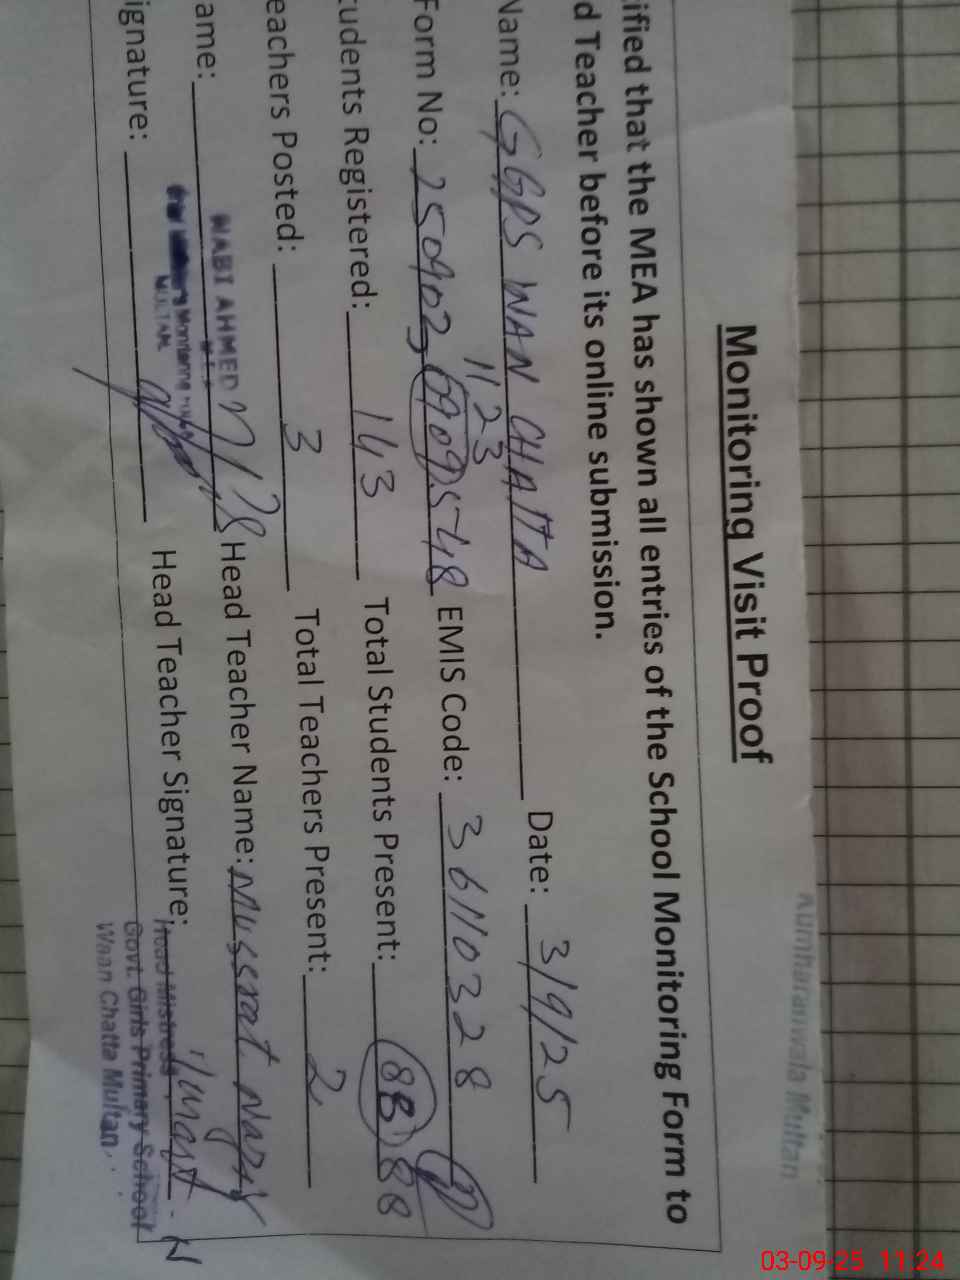 Kumharanwala Multan
Monitoring Visit Proof
ified that the MEA has shown all entries of the School Monitoring Form to
d Teacher before its online submission.
Name: GGPS WAN CHATTA Date: 3/9/25
1123
Form No: 250902 6909548 EMIS Code: 36110328
tudents Registered: 143 Total Students Present: 88 88
eachers Posted: 3 Total Teachers Present: 2
ame: NABI AHMED Head Teacher Name: Mussrat Nazir
M.E.A
ignature: MULTAN Head Teacher Signature:
Head Mistress
Govt. Girls Primary School
Waan Chatta Multan
03-09-25 11:24